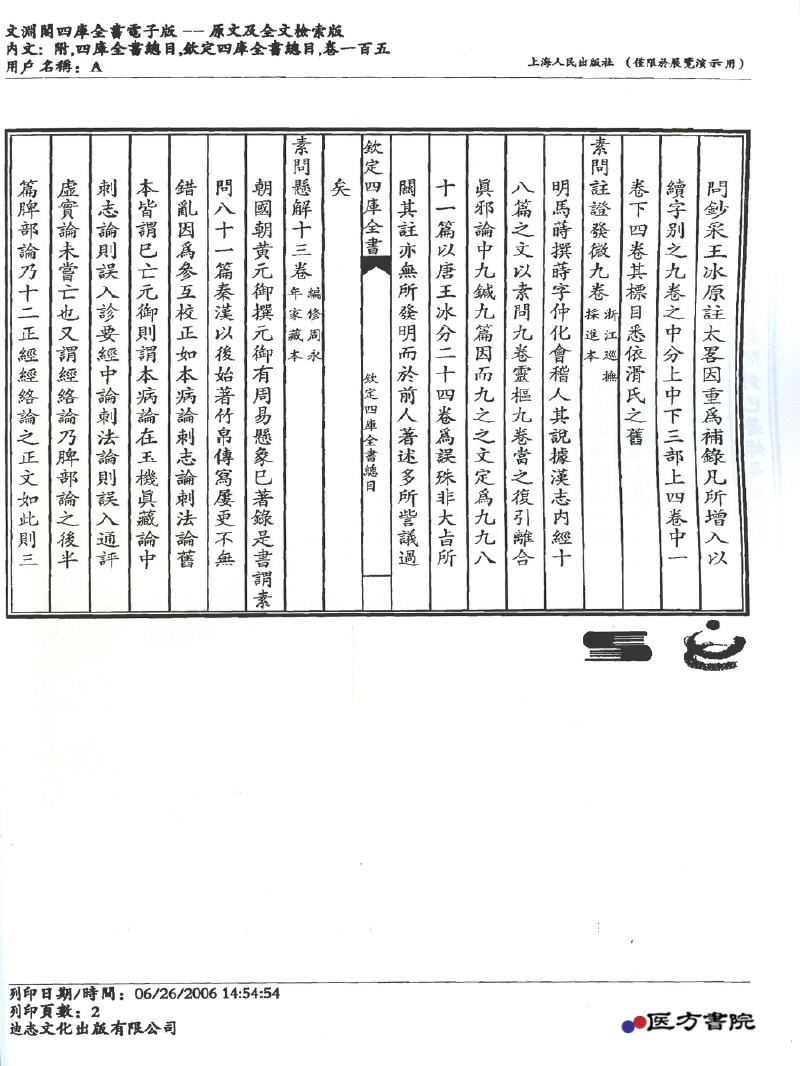 文淵閣四庫全書電子版 -- 原文及全文檢索版
內文：附,四庫全書總目,欽定四庫全書總目,卷一百五
用戶名稱：A
上海人民出版社 （僅限於展覽演示用）
問鈔采王冰原註太畧因重爲補錄凡所增入以
續字别之九卷之中分上中下三部上四卷中一
卷下四卷其標目悉依滑氏之舊
素問註證發微九卷 浙江巡撫
採進本
明馬蒔撰蒔字仲化會稽人其說據漢志內經十
八篇之文以素問九卷靈樞九卷當之復引離合
眞邪論中九鍼九篇因而九之之文定爲九九八
十一篇以唐王冰分二十四卷爲誤殊非大㫖所
關其註亦無所發明而於前人著述多所訾議過
欽定四庫全書
欽定四庫全書總目
矣
素問懸解十三卷 編修周永
年家藏本
朝國朝黄元御撰元御有周易懸象已著錄是書謂素
問八十一篇秦漢以後始著竹帛傳寫屢更不無
錯亂因爲參互校正如本病論刺志論刺法論舊
本皆謂已亡元御則謂本病論在玉機眞藏論中
刺志論則誤入診要經中論刺法論則誤入通評
虛實論未嘗亡也又謂經絡論乃脾部論之後半
篇脾部論乃十二正經經絡論之正文如此則三
列印日期/時間：06/26/2006 14:54:54
列印頁數：2
迪志文化出版有限公司
医方書院